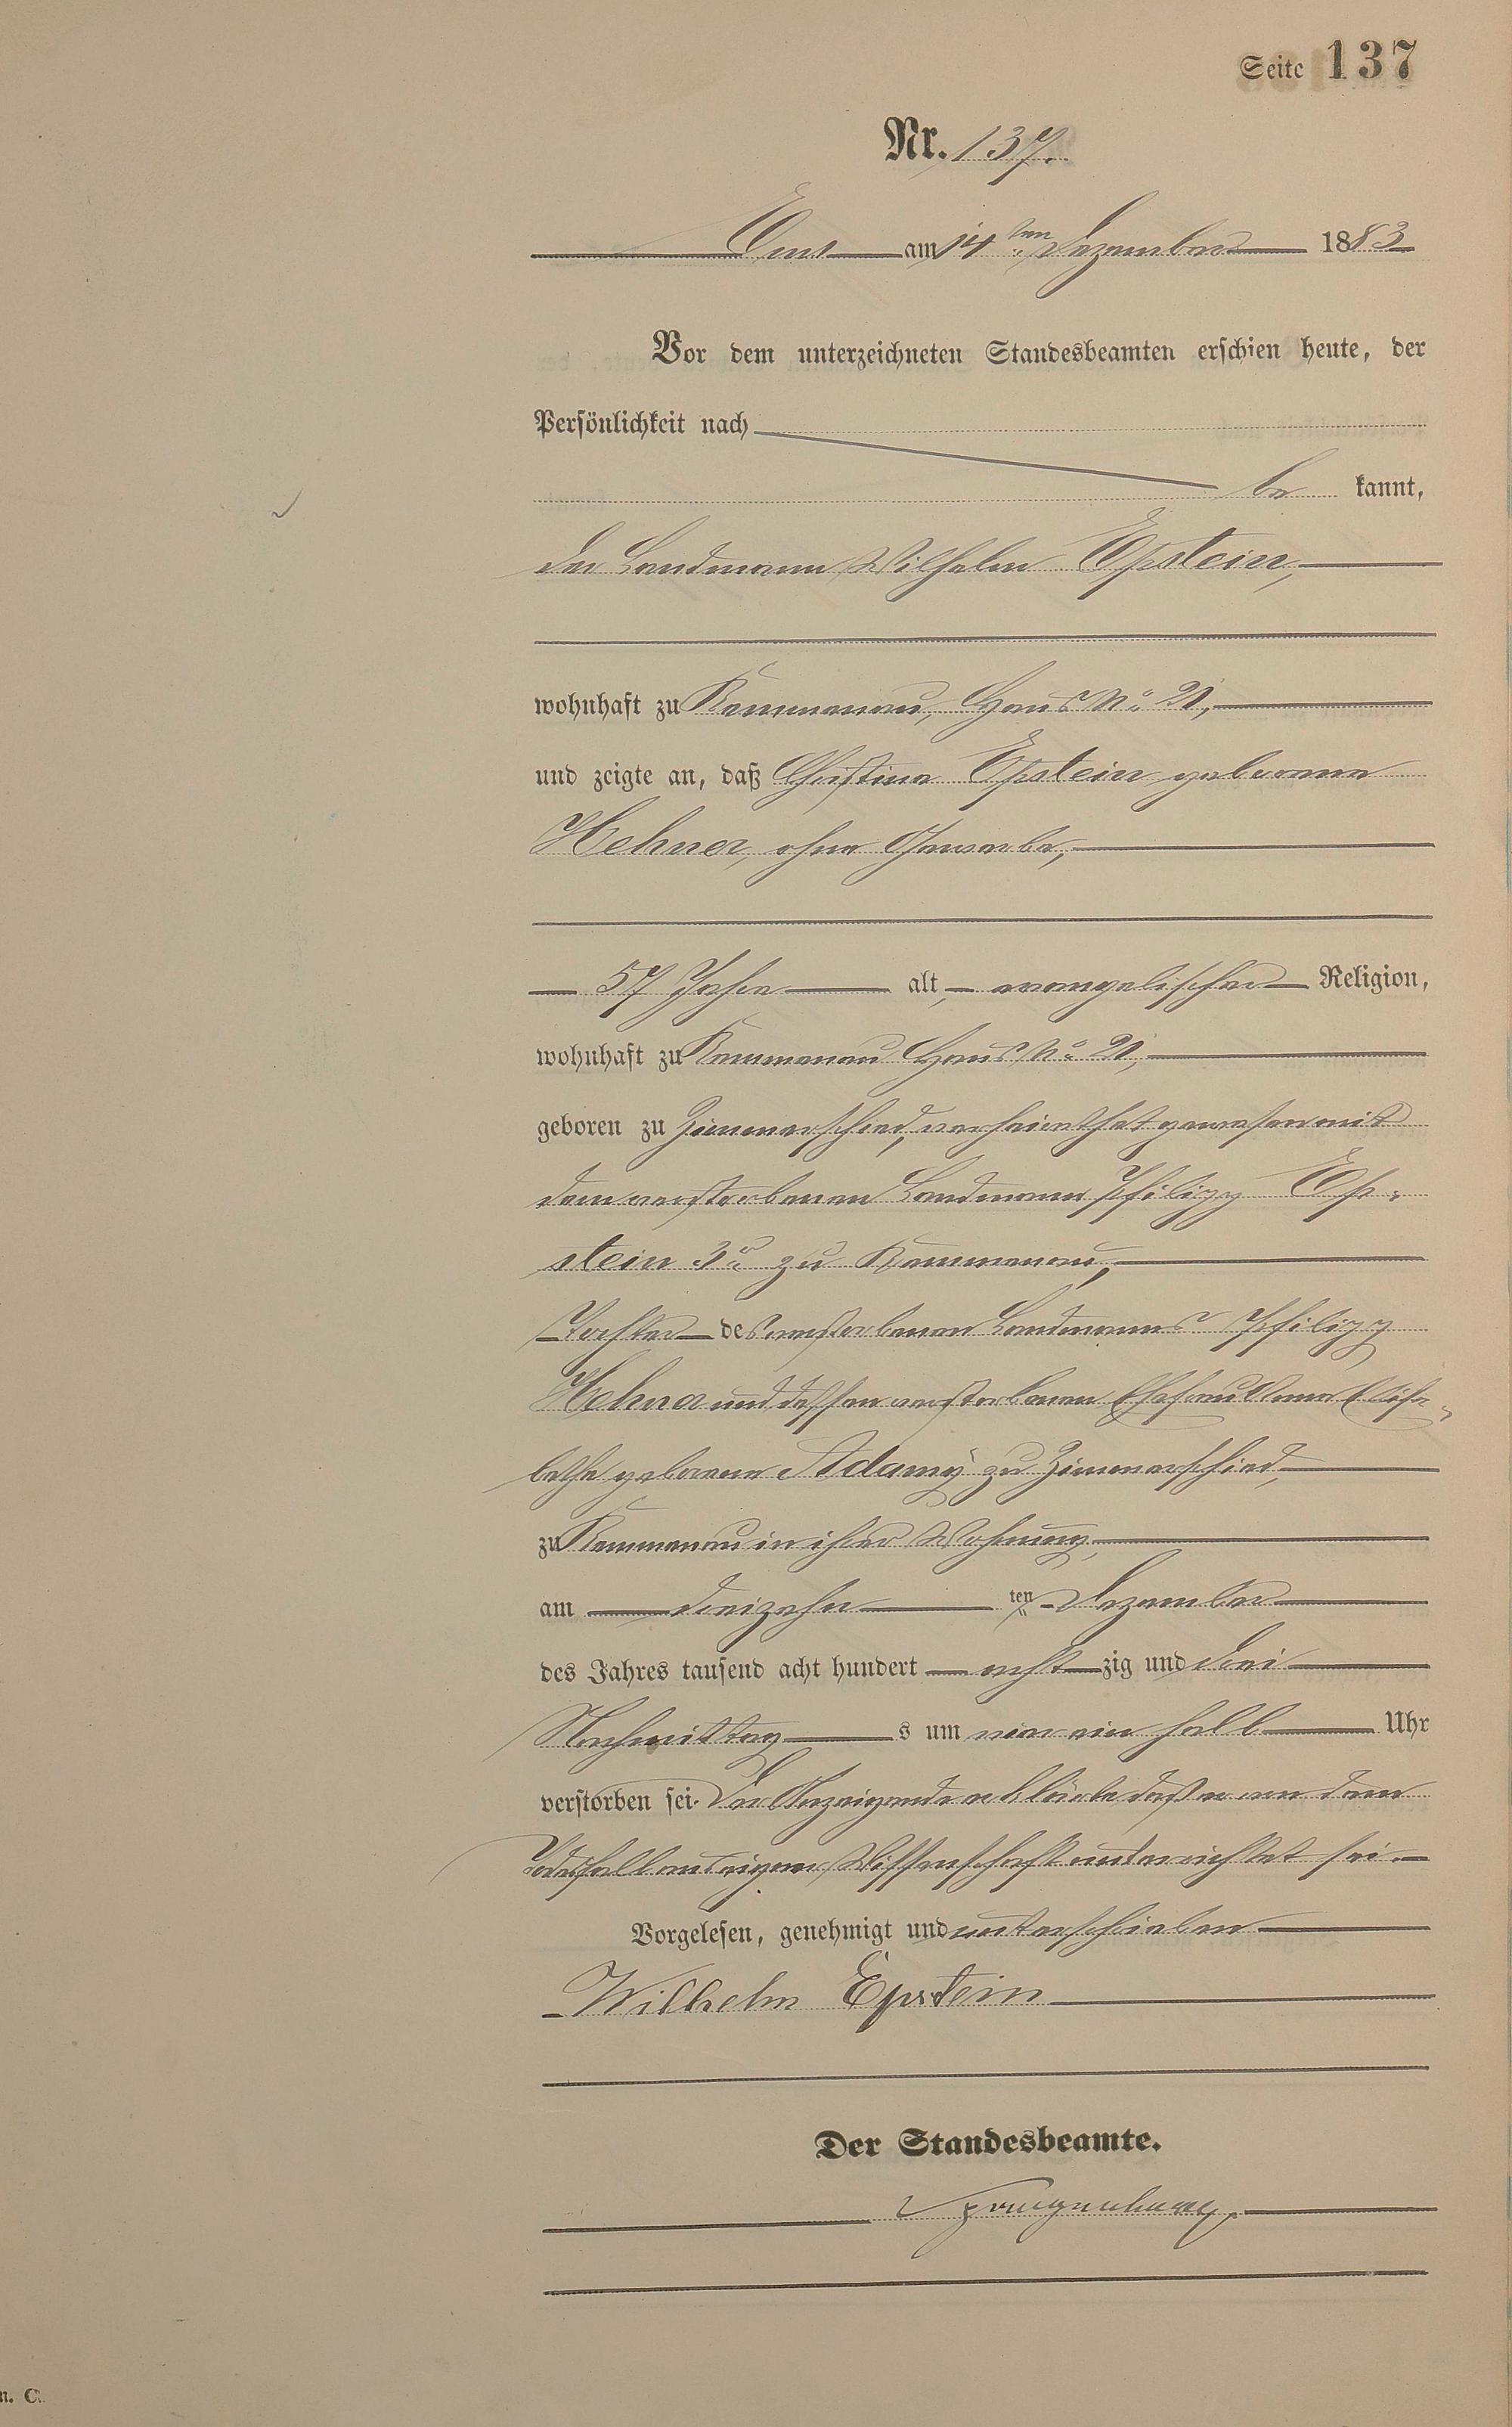 Seite 137
Nr. 137.
Ems am 14ten Dezember 1883
Vor dem unterzeichneten Standesbeamten erschien heute, der
Persönlichkeit nach
be kannt,
der Landmann Wilhelm Epstein,
wohnhaft zu Kemmenau, Haus No 21,
und zeigte an, daß Christina Epstein geborene
Hehner, ohne Gewerbe,
57 Jahre alt, evangelischer Religion,
wohnhaft zu Kemmenau Haus No 21,
geboren zu Zimmerschied, verheirathet gewesen mit
dem verstorbenen Landmann Philipp Ep-
stein 3r zu Kemmenau,
Tochter des verstorbenen Landmanns Philipp
Hehner und dessen verstorbenen Ehefrau Anna Elisa-
betha geborene Adamy zu Zimmerschied,
zu Kemmenau in ihrer Wohnung,
am dreizehn ten Dezember
des Jahres tausend acht hundert acht zig und drei
Nachmittag s um vier ein halb Uhr
verstorben sei. Der Anzeigende erklärte daß er von dem
Todesfall aus eigener Wissenschaft unterrichtet sei.
Vorgelesen, genehmigt und unterschrieben
Wilhelm Epstein
Der Standesbeamte.
Spangenberg.
n. C.